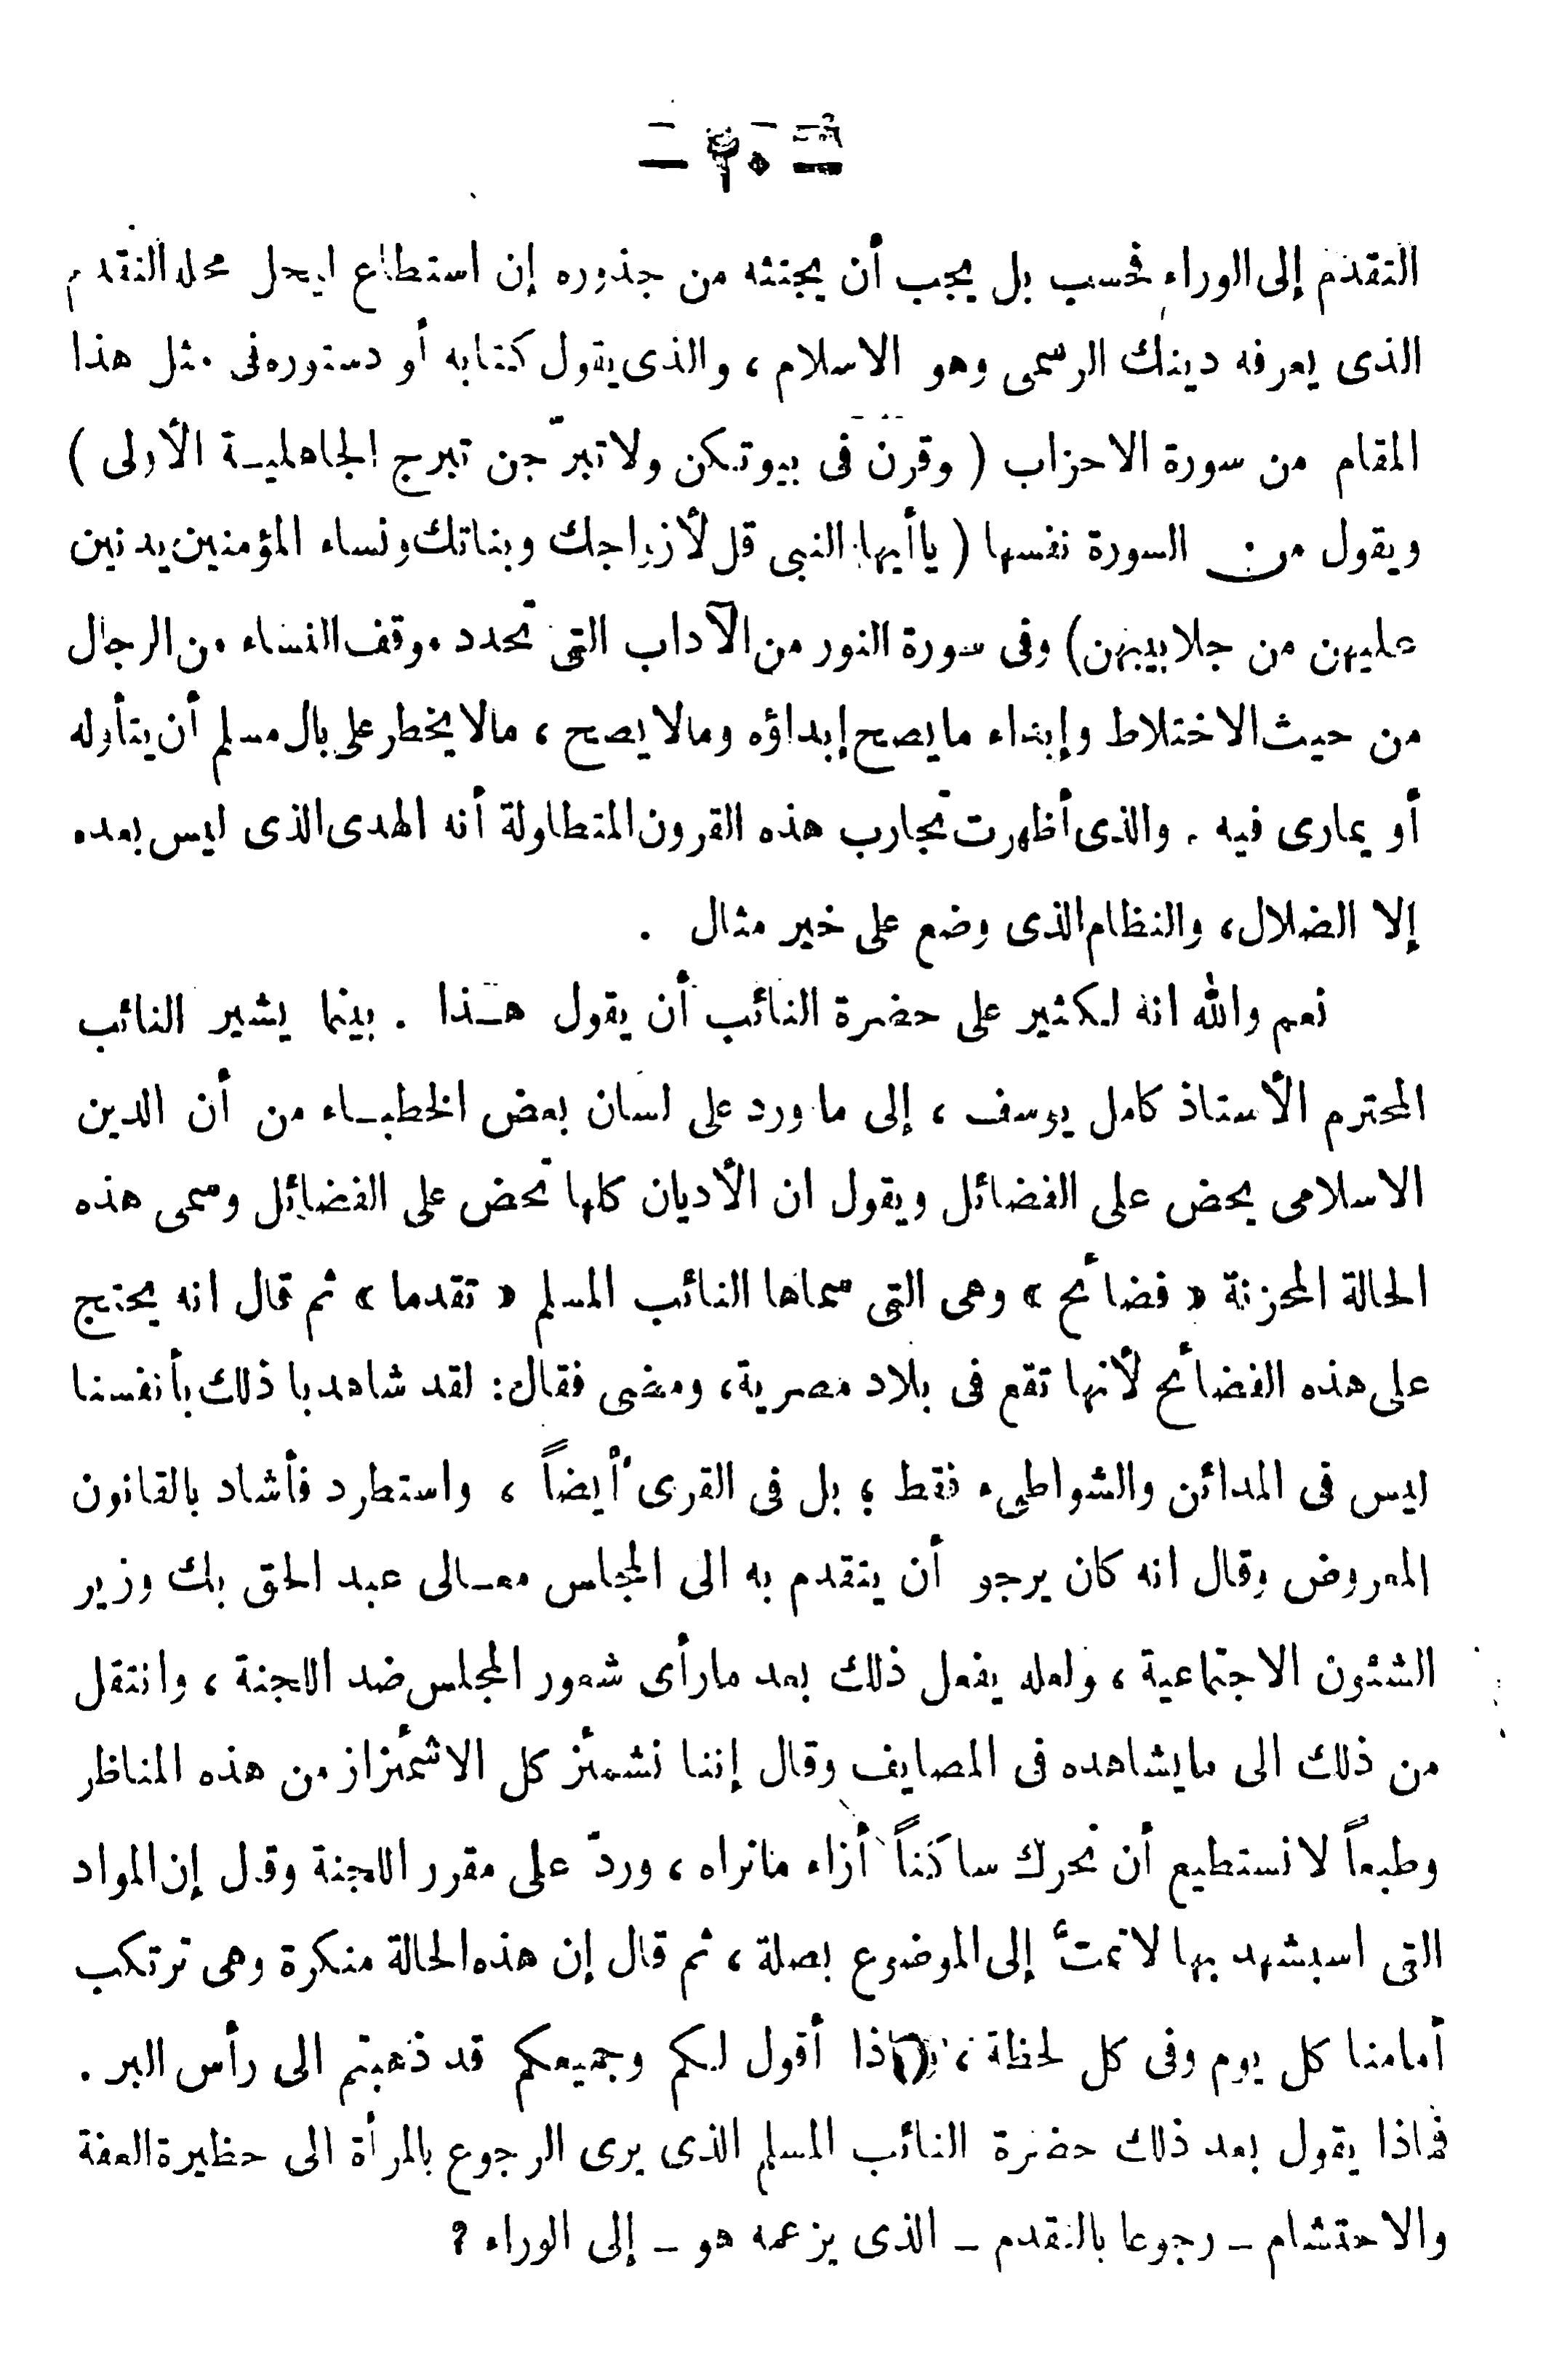 التقدم إلى الوراء فحسب بل يجب أن يجتثه من جذوره إن استطاع ليحل محله التقدم
الذى يعرفه دينك الرسمى وهو الاسلام ، والذى يقول كتابه أو دستوره فى مثل هذا
المقام من سورة الاحزاب ( وقرن فى بيوتكن ولا تبرّجن تبرج الجاهليـة الأولى )
ويقول من السورة نفسها ( يا أيها النبى قل لأزواجك وبناتك ونساء المؤمنين يدنين
عليهن من جلابيبهن) وفى سورة النور من الآداب التى تحدد موقف النساء من الرجال
من حيث الاختلاط وإبداء ما يصح إبداؤه وما لا يصح ، مالا يخطر على بال مسلم أن يتأوله
أو يمارى فيه . والذى أظهرت تجارب هذه القرون المتطاولة أنه الهدى الذى ليس بعده
إلا الضلال، والنظام الذى وضع على خير مثال .
نعم والله انه لكثير على حضرة النائب أن يقول هـذا . بينما يشير النائب
المحترم الأستاذ كامل يوسف ، إلى ما ورد على لسان بعض الخطبـاء من أن الدين
الاسلامى يحض على الفضائل ويقول ان الأديان كلها تحض على الفضائل وسمى هذه
الحالة المحزنة « فضائح » وهى التى سماها النائب المسلم « تقدما » ثم قال انه يحتج
على هذه الفضائح لأنها تقع فى بلاد مصرية، ومضى فقال: لقد شاهدنا ذلك بأنفسنا
ليس فى المدائن والشواطىء فقط ؛ بل فى القرى أيضاً ، واستطرد فأشاد بالقانون
المعروض وقال انه كان يرجو أن يتقدم به الى المجلس معـالى عبد الحق بك وزير
الشئون الاجتماعية ، ولعله يفعل ذلك بعد ما رأى شعور المجلس ضد اللجنة ، وانتقل
من ذلك الى ما يشاهده فى المصايف وقال إننا نشمئز كل الاشمئزاز من هذه المناظر
وطبعاً لا نستطيع أن نحرك ساكناً أزاء ما نراه ، وردّ على مقرر اللجنة وقال إن المواد
التى استشهد بها لا تمتّ إلى الموضوع بصلة ، ثم قال إن هذه الحالة منكرة وهى ترتكب
أمامنا كل يوم وفى كل لحظة ، أقول لكم وجميعكم قد ذهبتم الى رأس البر .
فماذا يقول بعد ذلك حضرة النائب المسلم الذى يرى الرجوع بالمرأة الى حظيرة العفة
والاحتشام – رجوعا بالتقدم – الذى يزعمه هو – إلى الوراء ؟